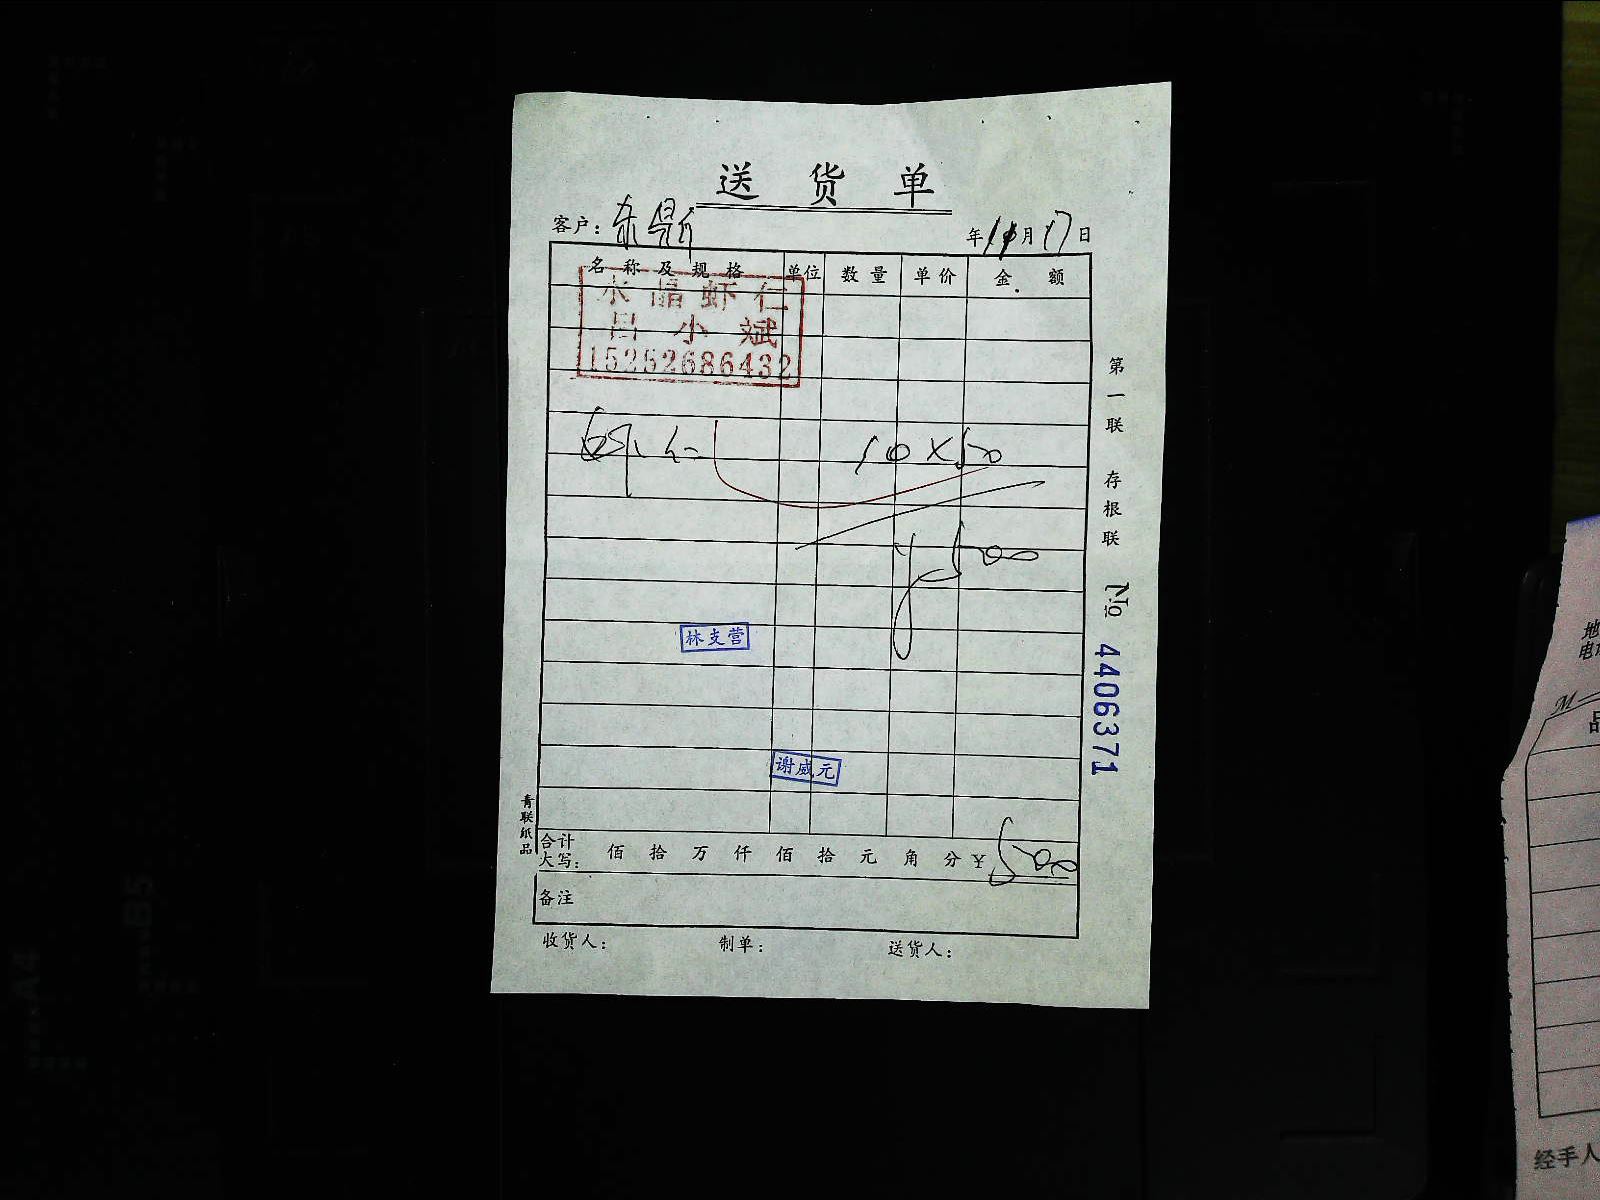 送 货 单
客户:
年10月17日
名 称 及 规 格 单位 数 量 单 价 金 额
水 晶 虾 仁
吕 小 斌
15252686432
虾仁 10×50
¥500
林支营
谢威元
合计
大写: 佰 拾 万 仟 佰 拾 元 角 分 ¥500
备注
收货人: 制单: 送货人:
第一联 存根联 No 4406371
青联纸品
地
电
M
品
经手人